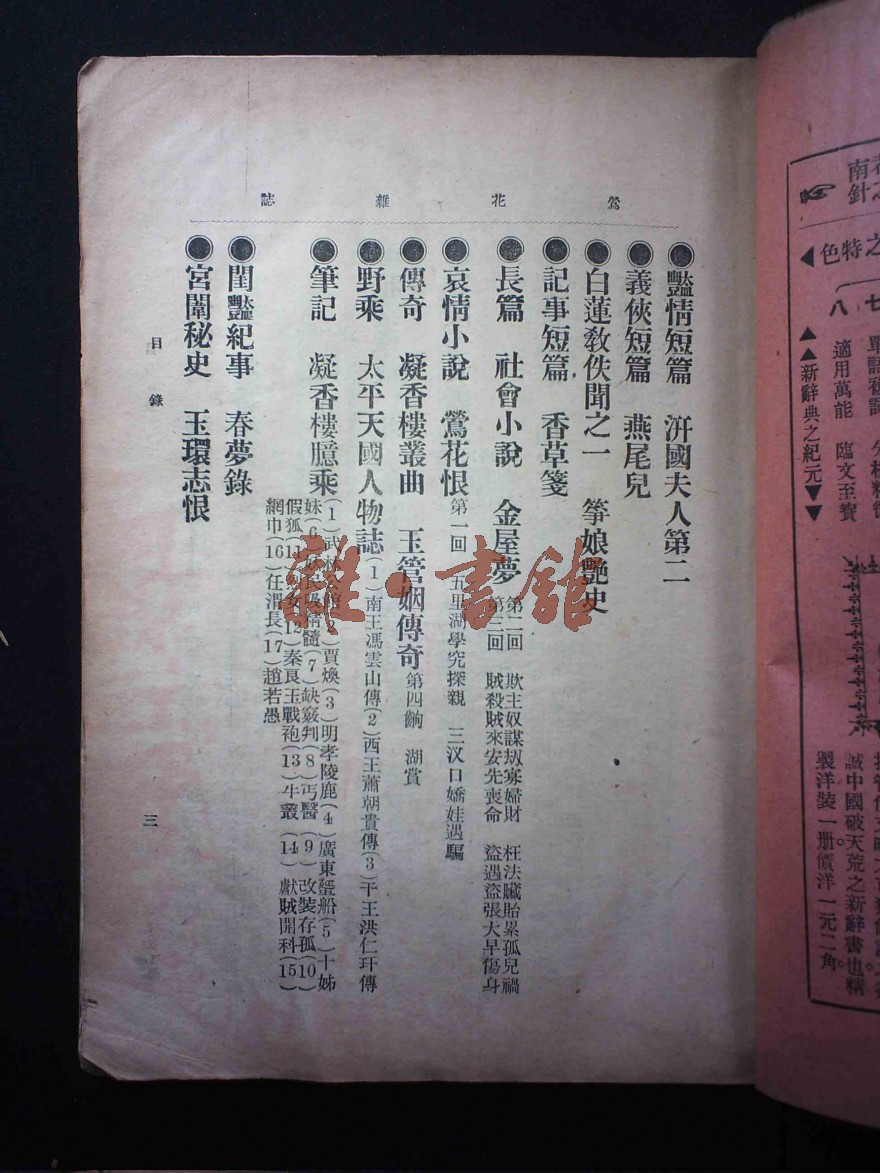 鶯花雜誌
豔情短篇　汧國夫人第二
義俠短篇　燕尾兒
白蓮教佚聞之一　箏娘艷史
記事短篇　香草箋
長篇　社會小說　金屋夢　第二回　欺主奴謀刼寡婦財　枉法贓貽累孤兒禍
第三回　賊殺賊來安先喪命　盜遇盜張大早傷身
哀情小說　鶯花恨　第一回　五里湖學究探親　三汊口嬌娃遇騙
傳奇　凝香樓叢曲　玉管姻傳奇　第四齣　湖賞
野乘　太平天國人物誌（1）南王馮雲山傳（2）西王蕭朝貴傳（3）干王洪仁玕傳
筆記　凝香樓臆乘（1）武（2）賈煥（3）明孝陵鹿（4）廣東蜑船（5）十姊
妹（6）民吸精髓（7）缺竅判（8）丐醫（9）改裝存孤（10）
假狐（11）女（12）秦良玉戰袍（13）牛叢（14）獻賊開科（15）
網巾（16）任渭長（17）趙若愚
閨豔紀事　春夢錄
宮闈秘史　玉環志恨
目錄
三
南針
之特色
七
八　適用萬能　臨文至寶
▲▲新辭典之紀元▼▼
誠中國破天荒之新辭書也精
製洋裝一册價洋一元二角
雜·書舘